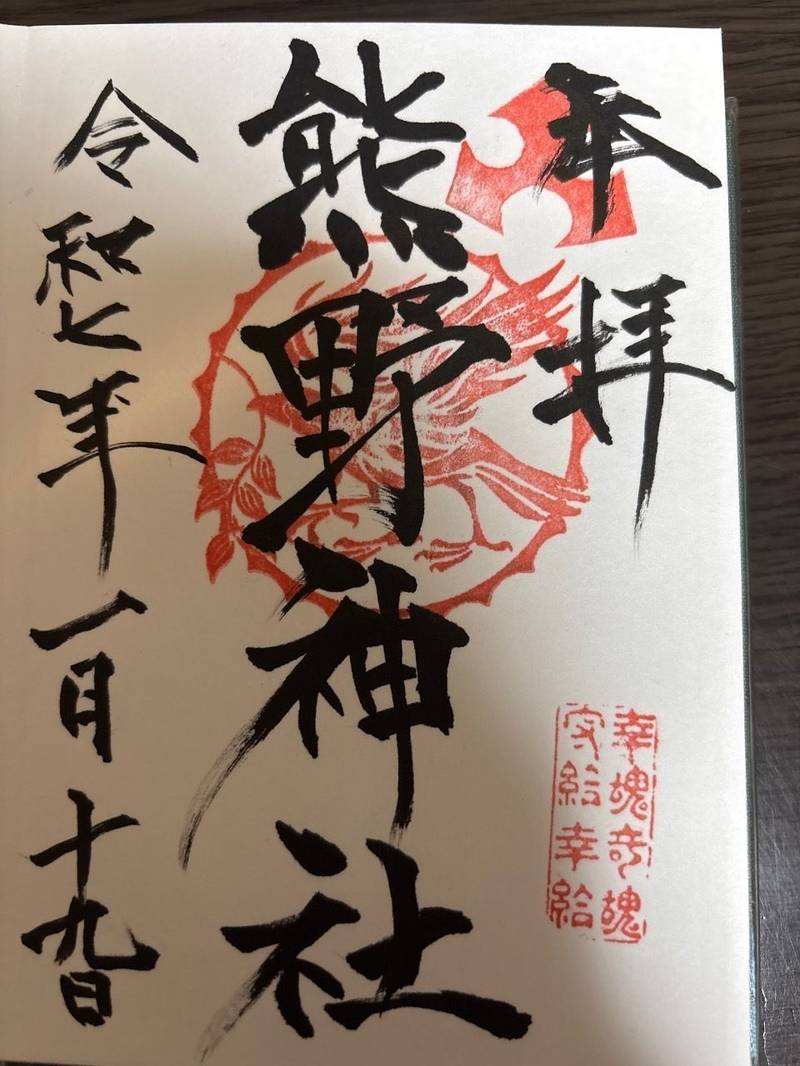 奉拝
熊野神社
令和七年一月十九日
幸魂奇魂
守給幸給